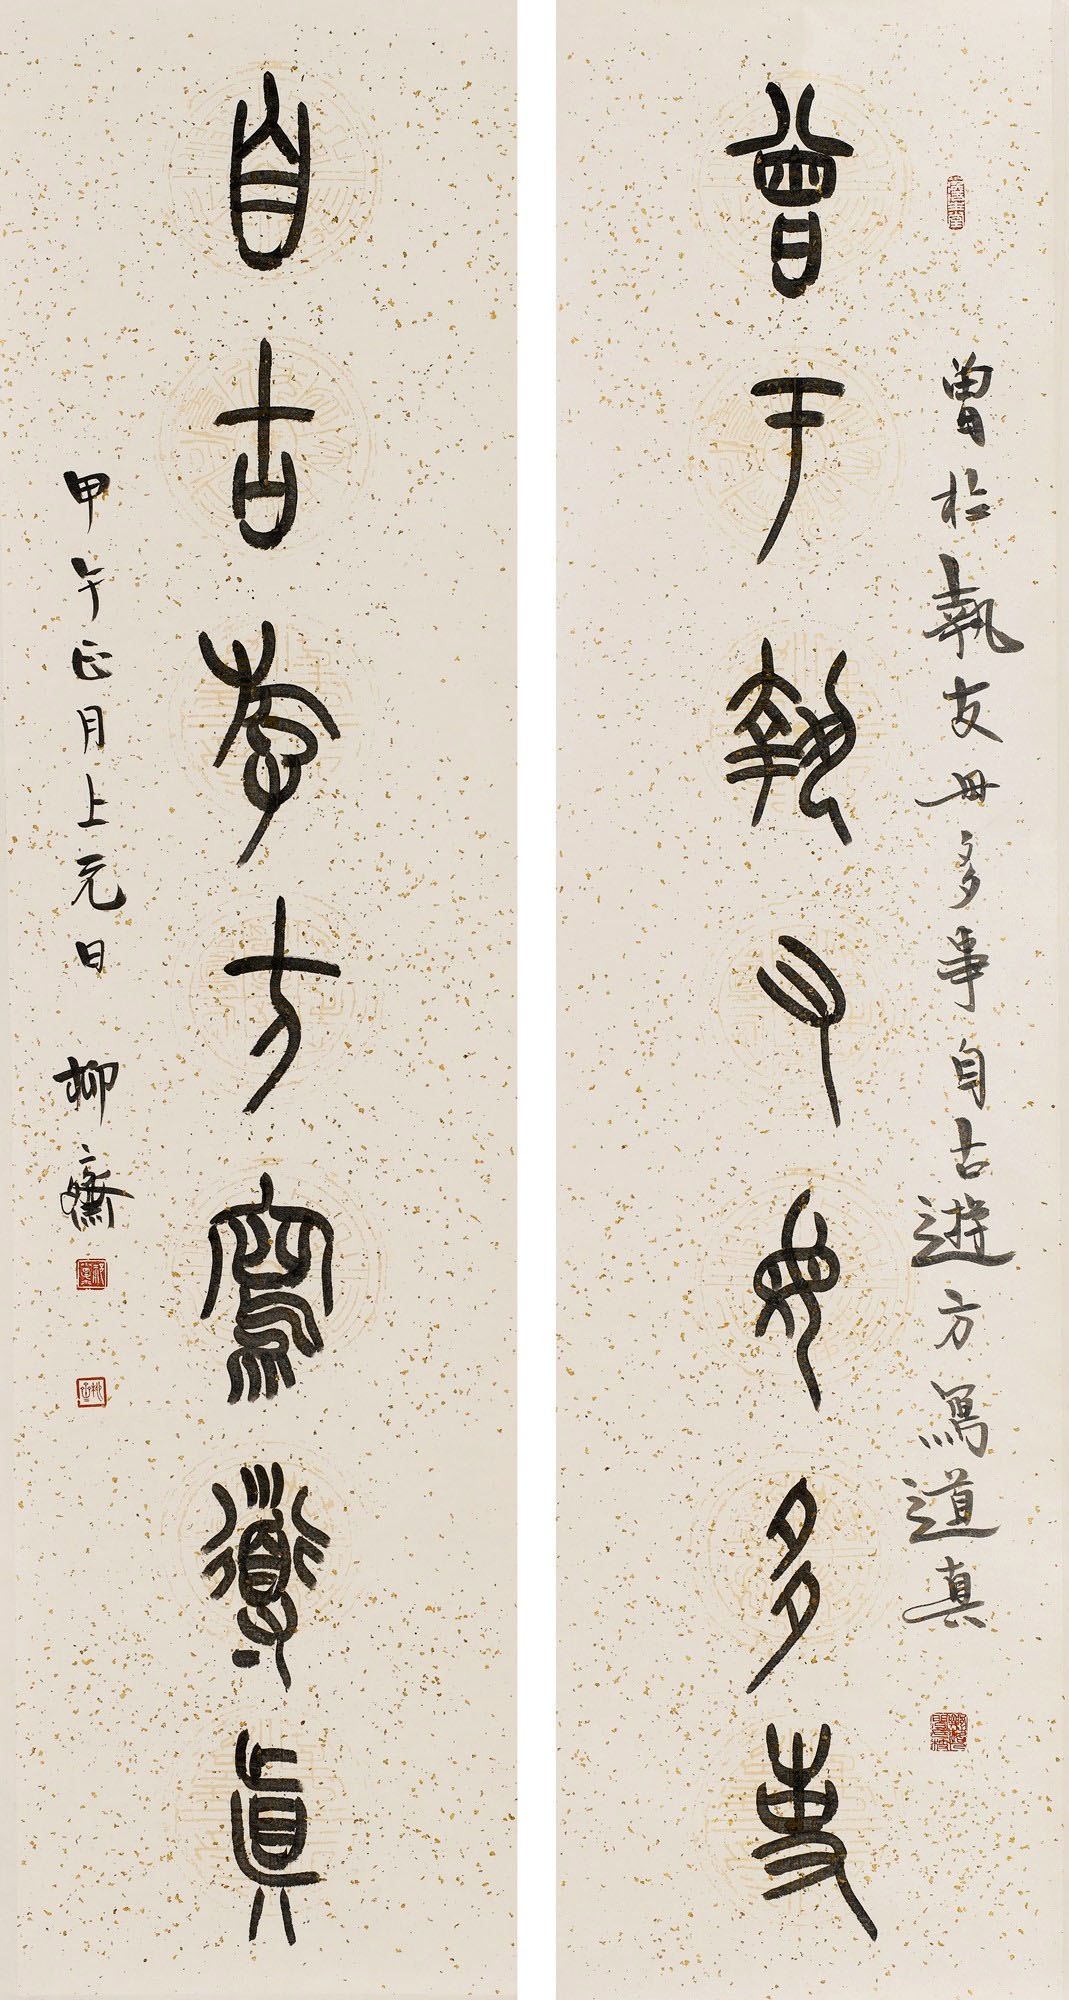 曾於執友毋多事自古遊方寫道真
曾于執友毋多事
自古斿方寫道真
甲午正月上元日 柳齋